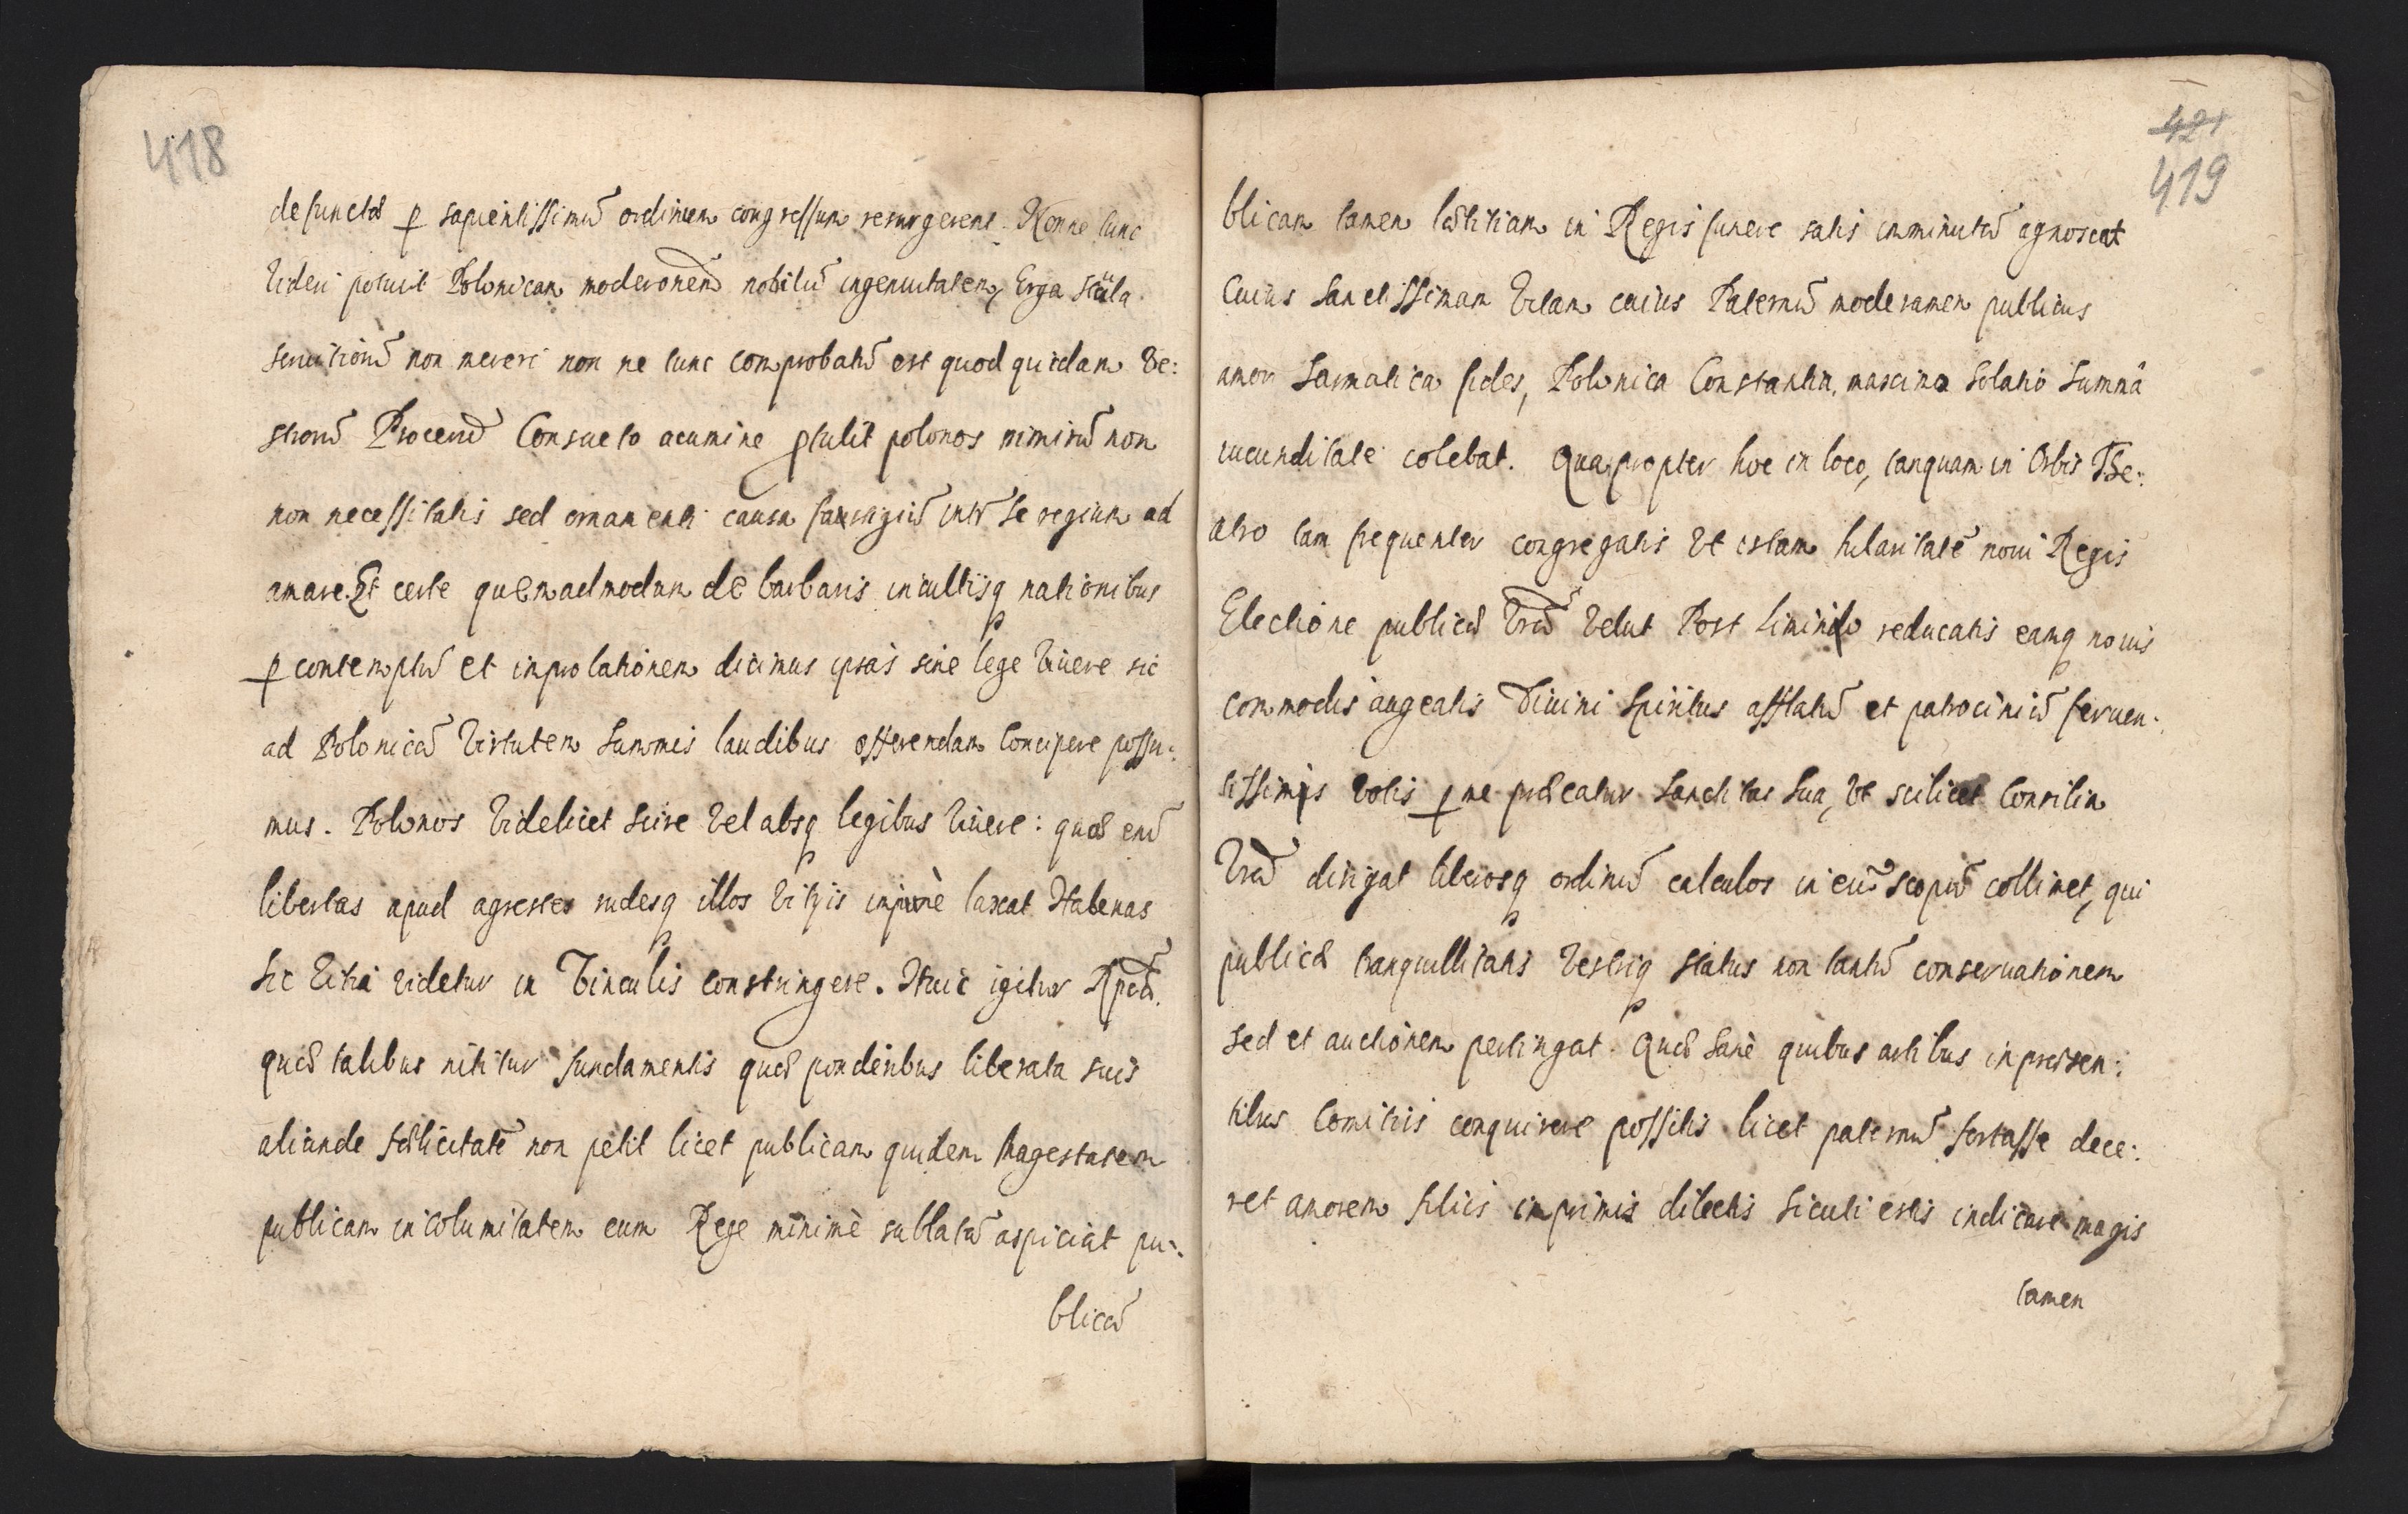 418
defunctæ p sapientissimū ordinem congressum resurgerent. Nonne tunc
Videri potuit Polonicam moderonem nobiliū ingenuitatem, Erga
seruitiorū non mereri non ne tunc comprobatū est quod quidam Ve:
strorū Procerū Consueto acumine ptulit polonos nimirū non
non necessitatis sed ornamenti causa fastigiū intr se regium ad
amare. Et certe quemadmodum de barbaris incultisq nationibus
p contemptū et improbationem dicimus ipsas sine lege Viuere sic
ad Polonicā Virtutem Summis laudibus efferendam Concipere possu:
mus. Polonos Videlicet Scire Vel absq legibus Viuere: quæ enī
libertas apud agrestes rudesq illos Vitijs impunè laxat Habenas
Sic Vitia videtur in Vinculis constringere. Huic igitur Rpcæ.
quæ talibus nititur fundamentis quæ ponderibus liberata suis
aliunde fœlicitatē non petit licet publicam quidem Magestatem
publicam incolumitatem cum Rege minimè sublatā aspiciat pu:
blicā
421
419
blicam tamen lætitiam in Regis funere satis imminutā agnoscat
Cuius Sanctissimam Vitam cuius Paternū moderamen publicus
amor Sarmatica fides, Polonica Constantia, maxima Solatio Summâ
iucunditate colebat. Quapropter hoc in loco, tanquam in Orbis The:
atro tam frequenter congregatis Vt istam hilaritatē noui Regis
Electione publicæ Vræ Velut Post Liminio reducatis eamq nouis
commodis augeatis Diuini Spiritus afflatū et patrociniū feruen:
tissimis Votis p me præcatur Sanctitas Sua, Vt scilicet Consilia
Vrā dirigat liberosq ordinū calculos in eū scopū collimet, qui
publicæ tranquillitatis Vestriq status non tantū conseruationem
sed et auctionem pertingat. Quæ Sanè quibus artibus in præsen:
tibus Comitiis conquirere possitis licet paternū fortasse dece:
ret amorem filiis imprimis dilectis Sicuti estis indicare magis
tamen